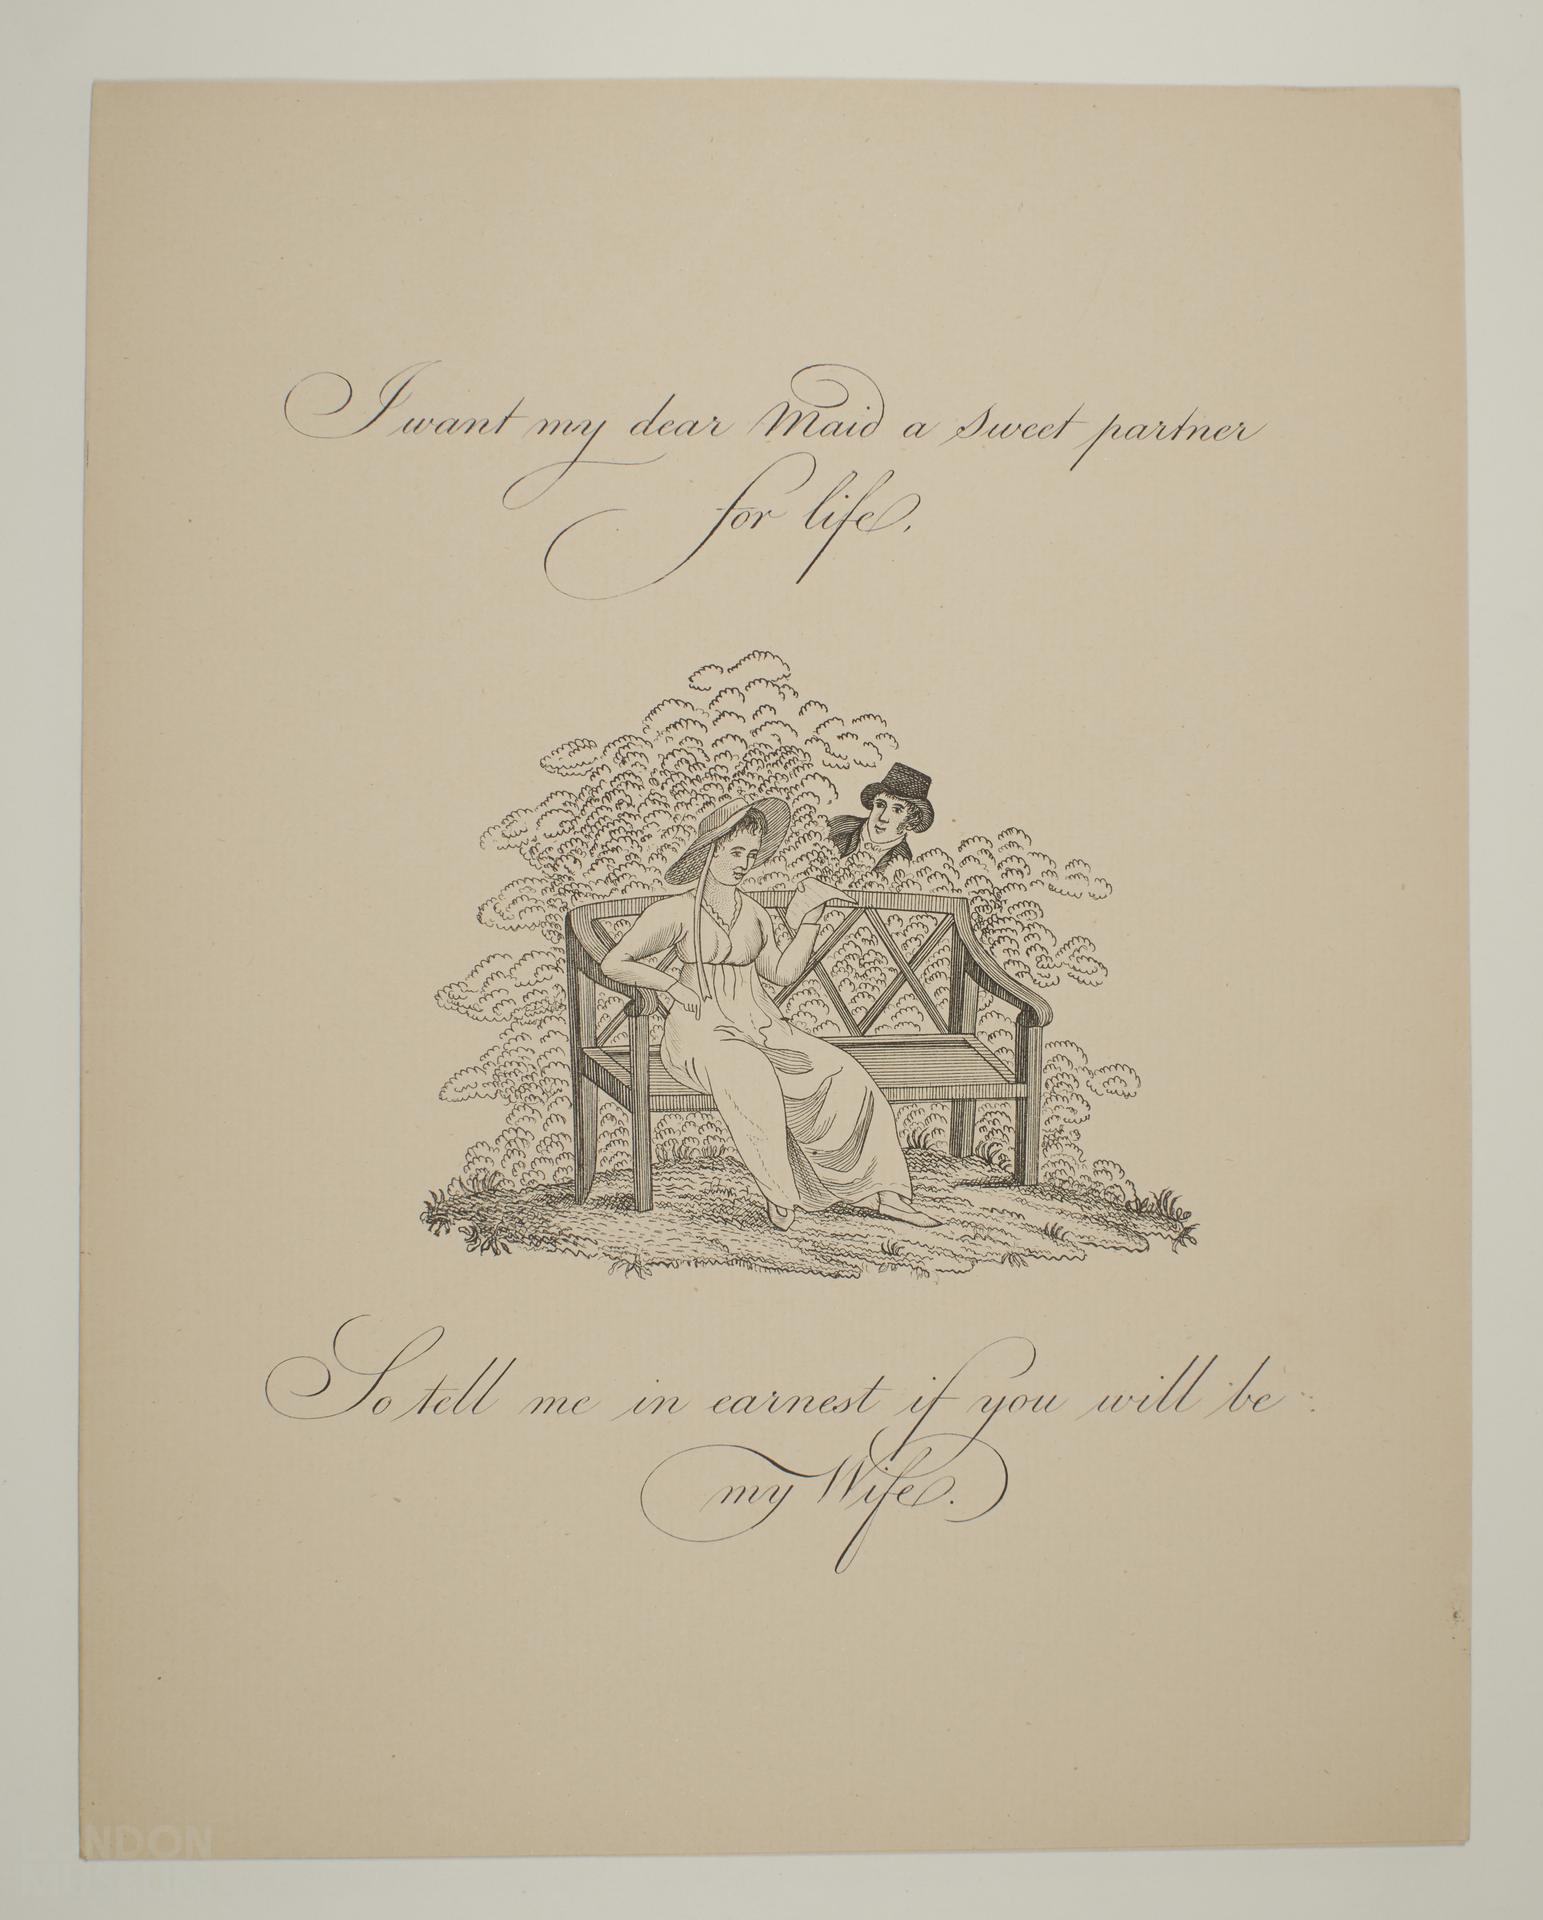 I want my dear Maid a sweet partner
for life,
So tell me in earnest if you will be
my Wife.
LONDON
MUSEUM